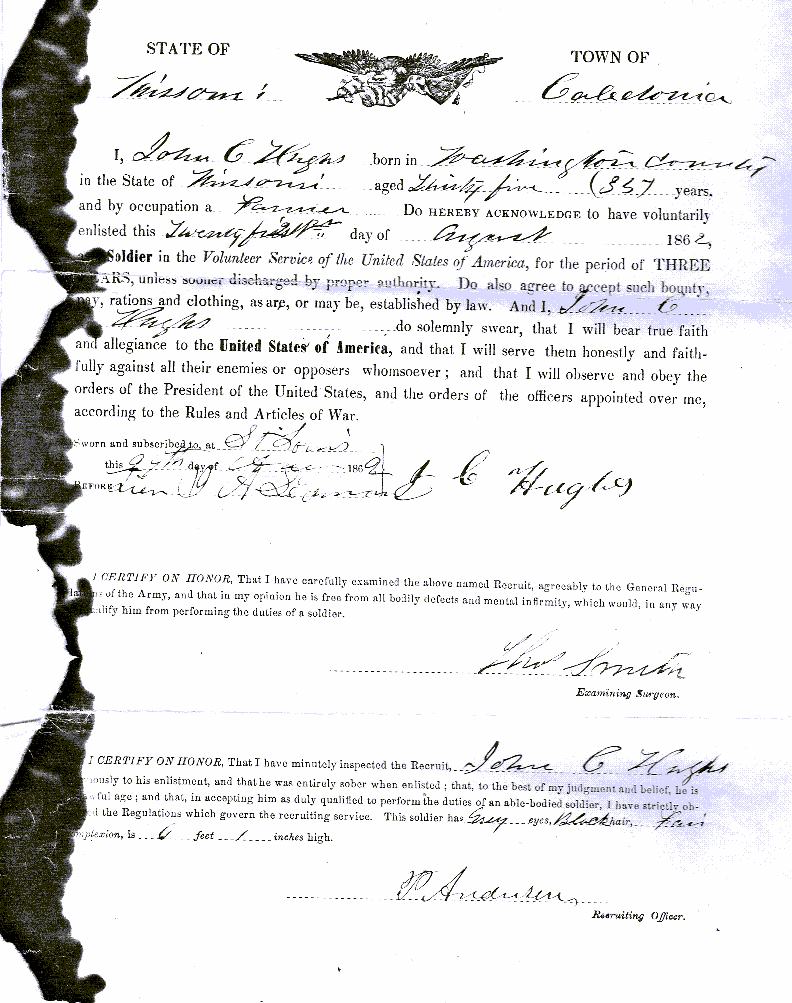 STATE OF TOWN OF
Missouri Caledonia
I, John C Hughs born in Washington County
in the State of Missouri aged Thirty five (35) years,
and by occupation a Farmer Do HEREBY ACKNOWLEDGE to have voluntarily
enlisted this Twenty first day of August 1862,
Soldier in the Volunteer Service of the United States of America, for the period of THREE
ARS, unless sooner discharged by proper authority. Do also agree to accept such bounty,
pay, rations and clothing, as are, or may be, established by law. And I, John C
Hughs do solemnly swear, that I will bear true faith
and allegiance to the United States of America, and that I will serve them honestly and faith-
fully against all their enemies or opposers whomsoever; and that I will observe and obey the
orders of the President of the United States, and the orders of the officers appointed over me,
according to the Rules and Articles of War.
Sworn and subscribed to, at St Louis
this 27th day of 1862
BEFORE J C Hughes
I CERTIFY ON HONOR, That I have carefully examined the above named Recruit, agreeably to the General Regu-
of the Army, and that in my opinion he is free from all bodily defects and mental infirmity, which would, in any way
alify him from performing the duties of a soldier.
Thos Smith
Examining Surgeon.
I CERTIFY ON HONOR, That I have minutely inspected the Recruit, John C Hughs
iously to his enlistment, and that he was entirely sober when enlisted; that, to the best of my judgment and belief, he is
ful age; and that, in accepting him as duly qualified to perform the duties of an able-bodied soldier, I have strictly ob-
d the Regulations which govern the recruiting service. This soldier has Grey eyes, Black hair, Fair
mplexion, is 6 feet 1 inches high.
P Anderson
Recruiting Officer.